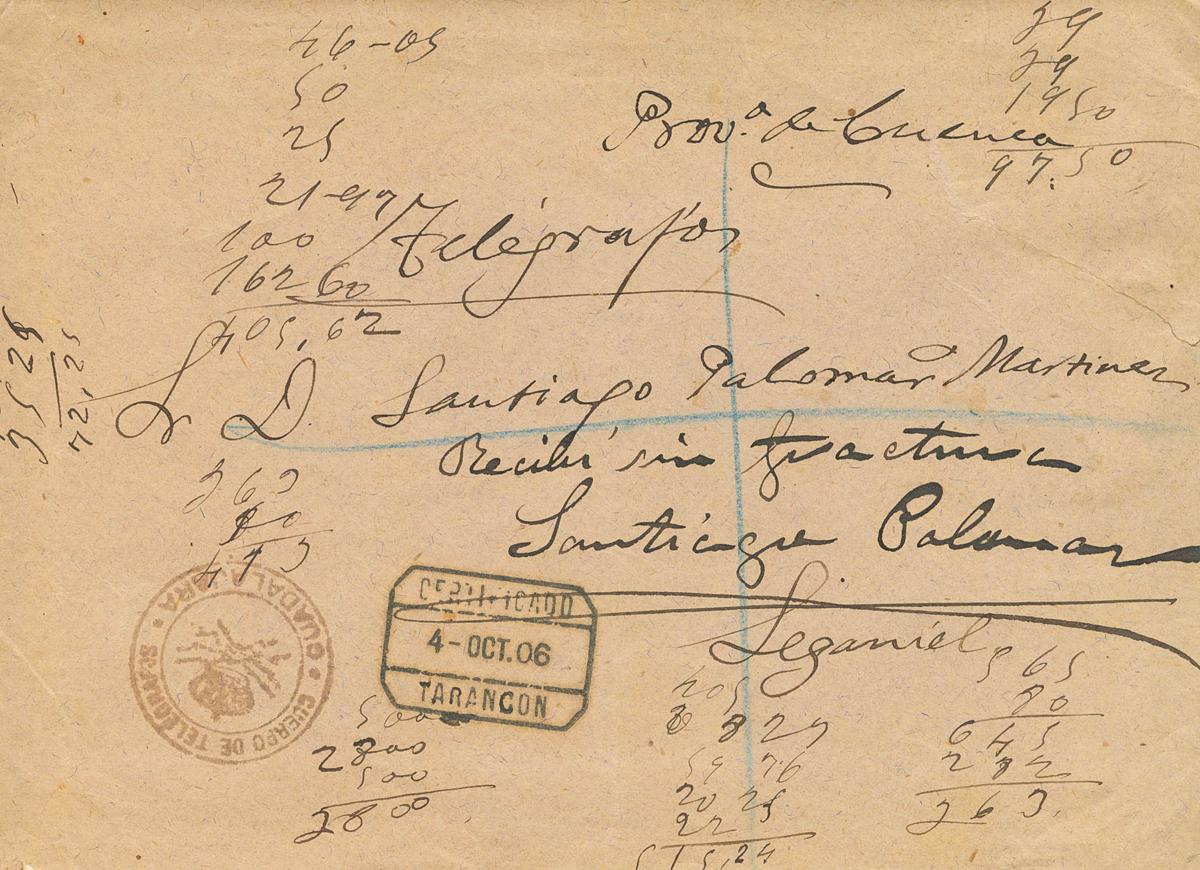 46-05
50
25
21-97
100
162 60
405,62
39
39
19 50
97.50
Prov.ª de Cuenca
Telégrafos
35 25
72,25
Sr D. Santiago Palomar Martinez
Recibí sin fractura
Santiago Palomar
Leganiel
363
CERTIFICADO
4-OCT.06
TARANCON
CUERPO DE TELEGRAFOS * GUADALAJARA *
500
500
3800
565
80
645
282
363.
405
59 76
20 25
22
515,24